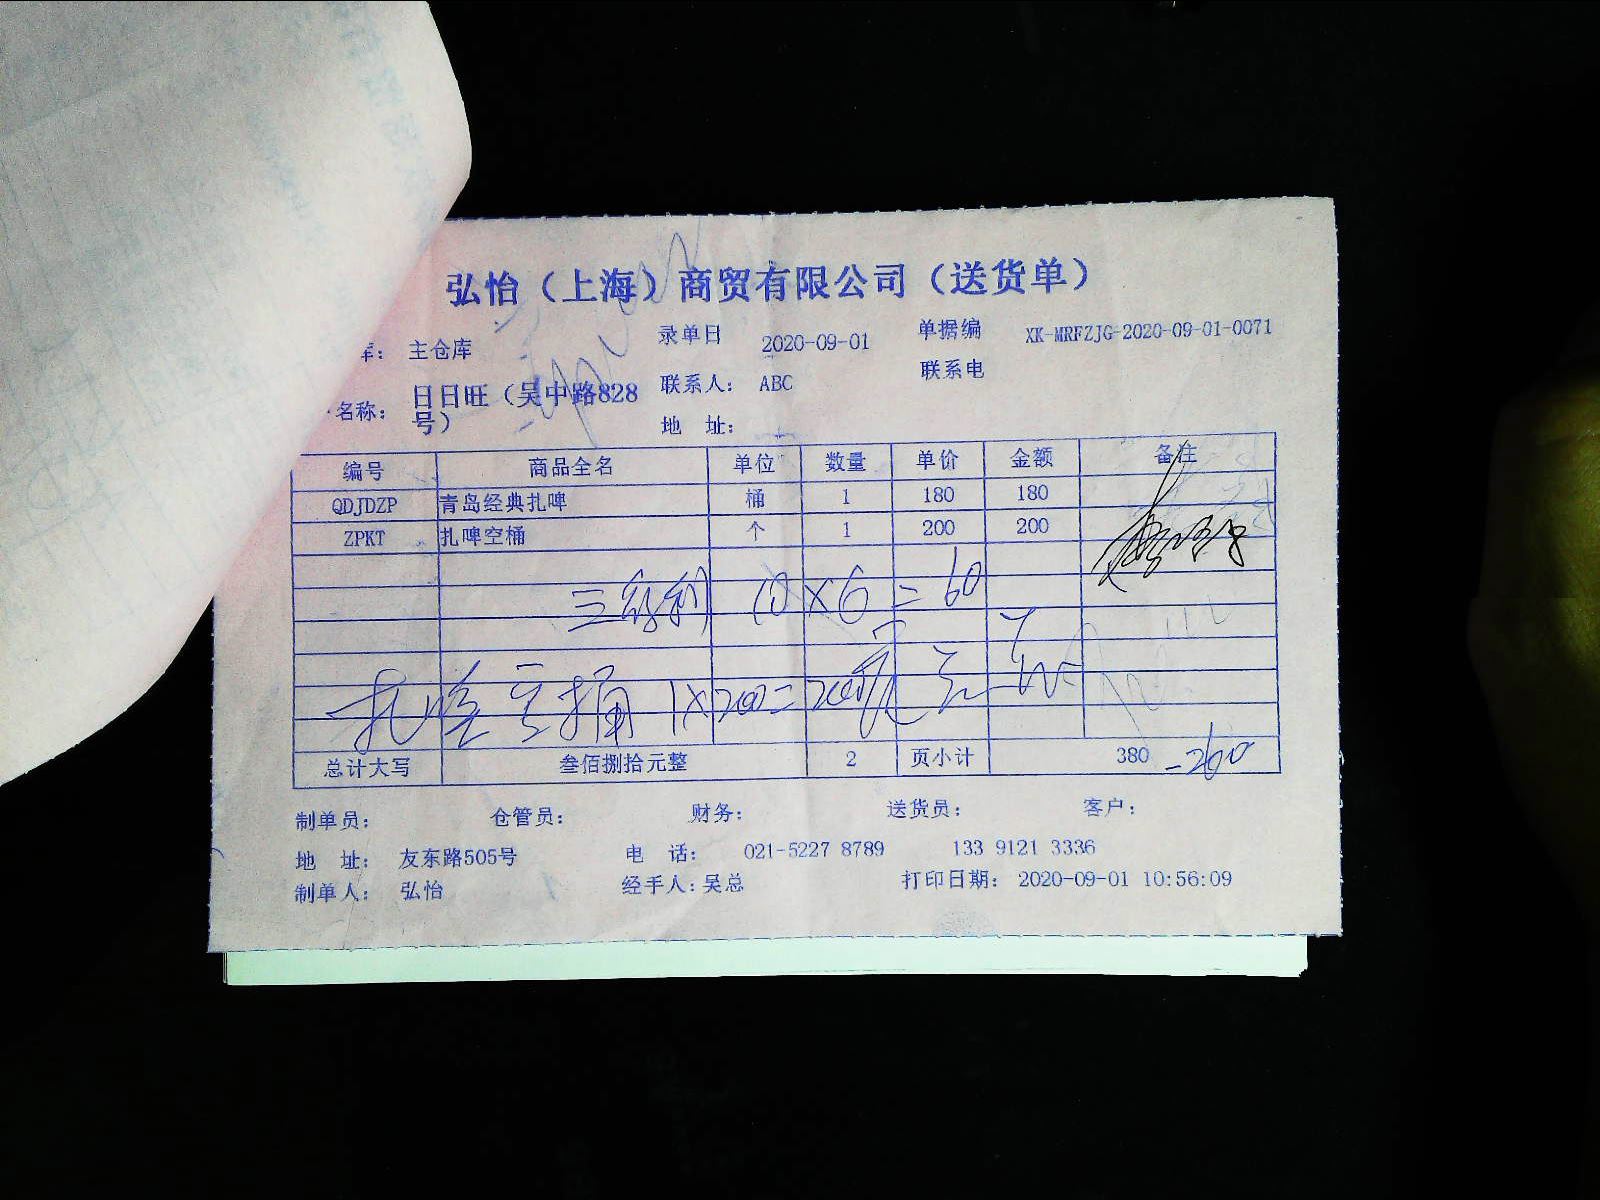 弘怡（上海）商贸有限公司（送货单）
库： 主仓库 录单日 2020-09-01 单据编 XK-MRFZJG-2020-09-01-0071
名称： 日日旺（吴中路828号） 联系人： ABC 联系电
地 址：
编号 商品全名 单位 数量 单价 金额 备注
QDJDZP 青岛经典扎啤 桶 1 180 180
ZPKT 扎啤空桶 个 1 200 200
10×6=60
扎啤空桶 1×200=200
总计大写 叁佰捌拾元整 2 页小计 380 -260
制单员： 仓管员： 财务： 送货员： 客户：
地 址： 友东路505号 电 话： 021-5227 8789 133 9121 3336
制单人： 弘怡 经手人：吴总 打印日期： 2020-09-01 10:56:09